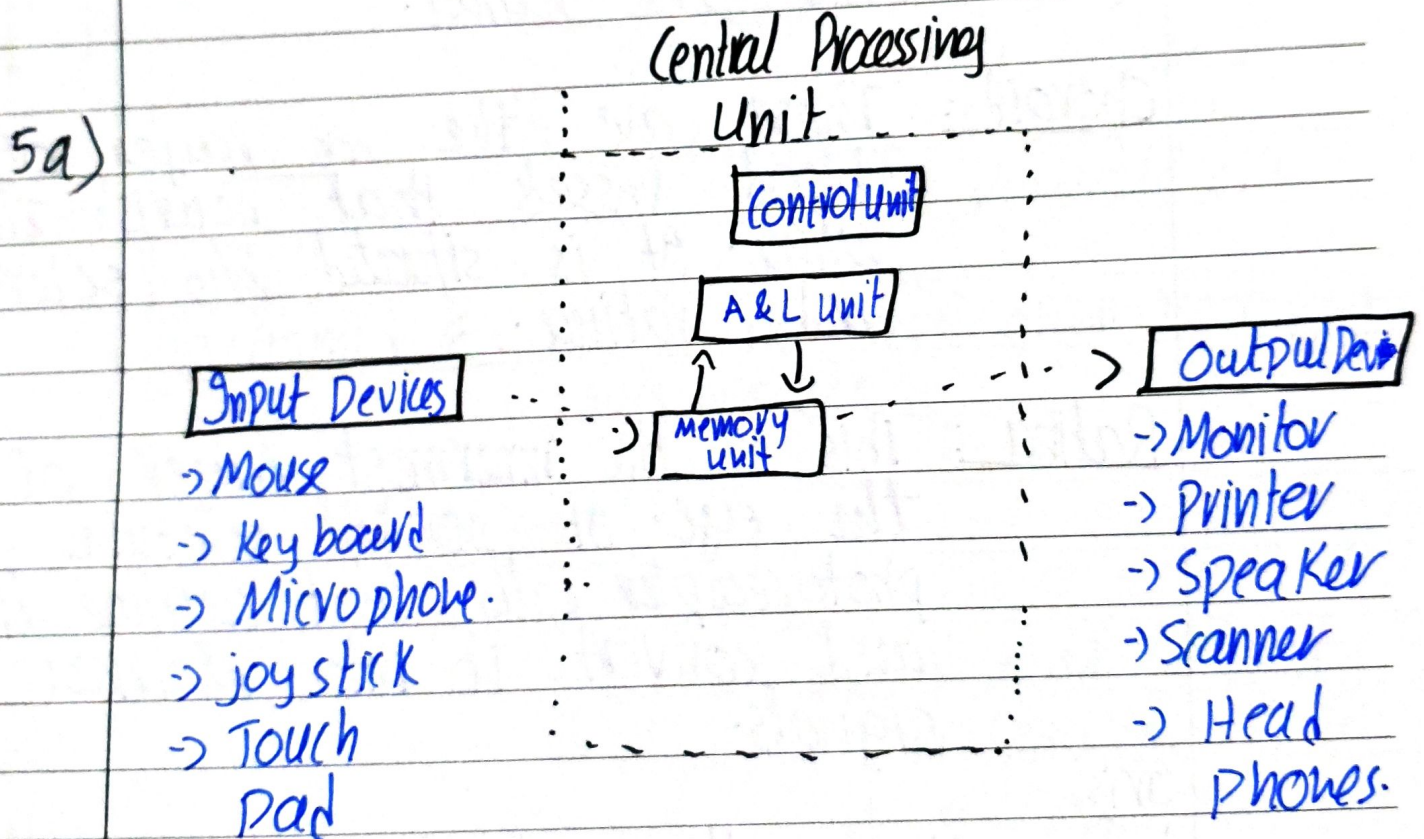 Central Processing
Unit
5a)
Control Unit
A & L Unit
Input Devices
Memory
unit
-> Mouse
-> Keyboard
-> Microphone.
-> joystick
-> Touch
Pad
Output Devi
-> Monitor
-> Printer
-> Speaker
-> Scanner
-> Head
phones.